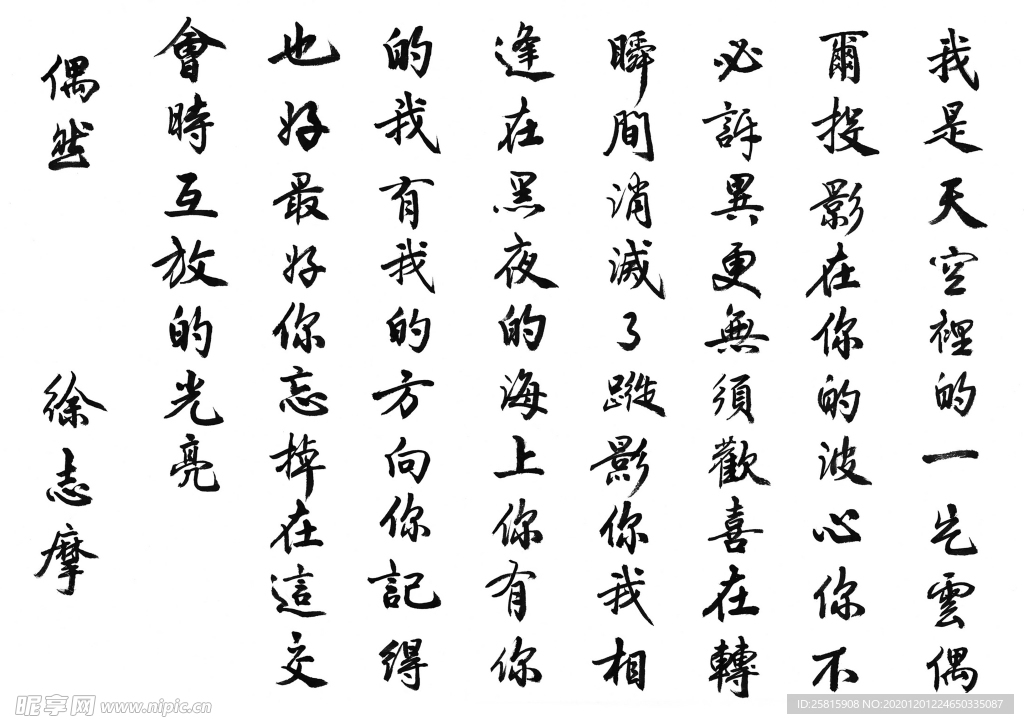 我是天空裡的一片雲偶
爾投影在你的波心你不
必訝異更無須歡喜在轉
瞬間消滅了蹤影你我相
逢在黑夜的海上你有你
的我有我的方向你記得
也好最好你忘掉在這交
會時互放的光亮
偶然 徐志摩
昵享网 www.nipic.cn
ID:25815908 NO:20201201224650335087